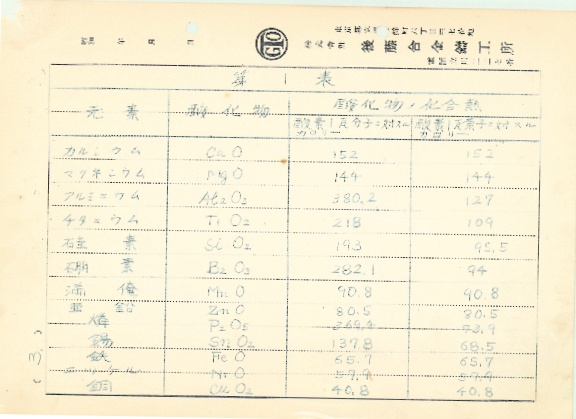 昭和 年 月 日
GTO
株式会社 後藤合金鑄工所
第 1 表
元素 酸化物 酸化物ノ化合熱
酸素一瓦分子ニ対スル 酸素一瓦原子ニ対スル
カルシウム CaO 152 152
マグネシウム MgO 144 144
アルミニウム Al2O3 380.2 127
チタニウム TiO2 218 109
硅素 SiO2 193 96.5
硼素 B2O3 282.1 94
満俺 MnO 90.8 90.8
亜鉛 ZnO 80.5 80.5
燐 P2O5 369.4 73.9
錫 SnO2 137.8 68.5
鉄 FeO 65.7 65.7
NiO 57.9 57.9
銅 40.8 40.8
(3)